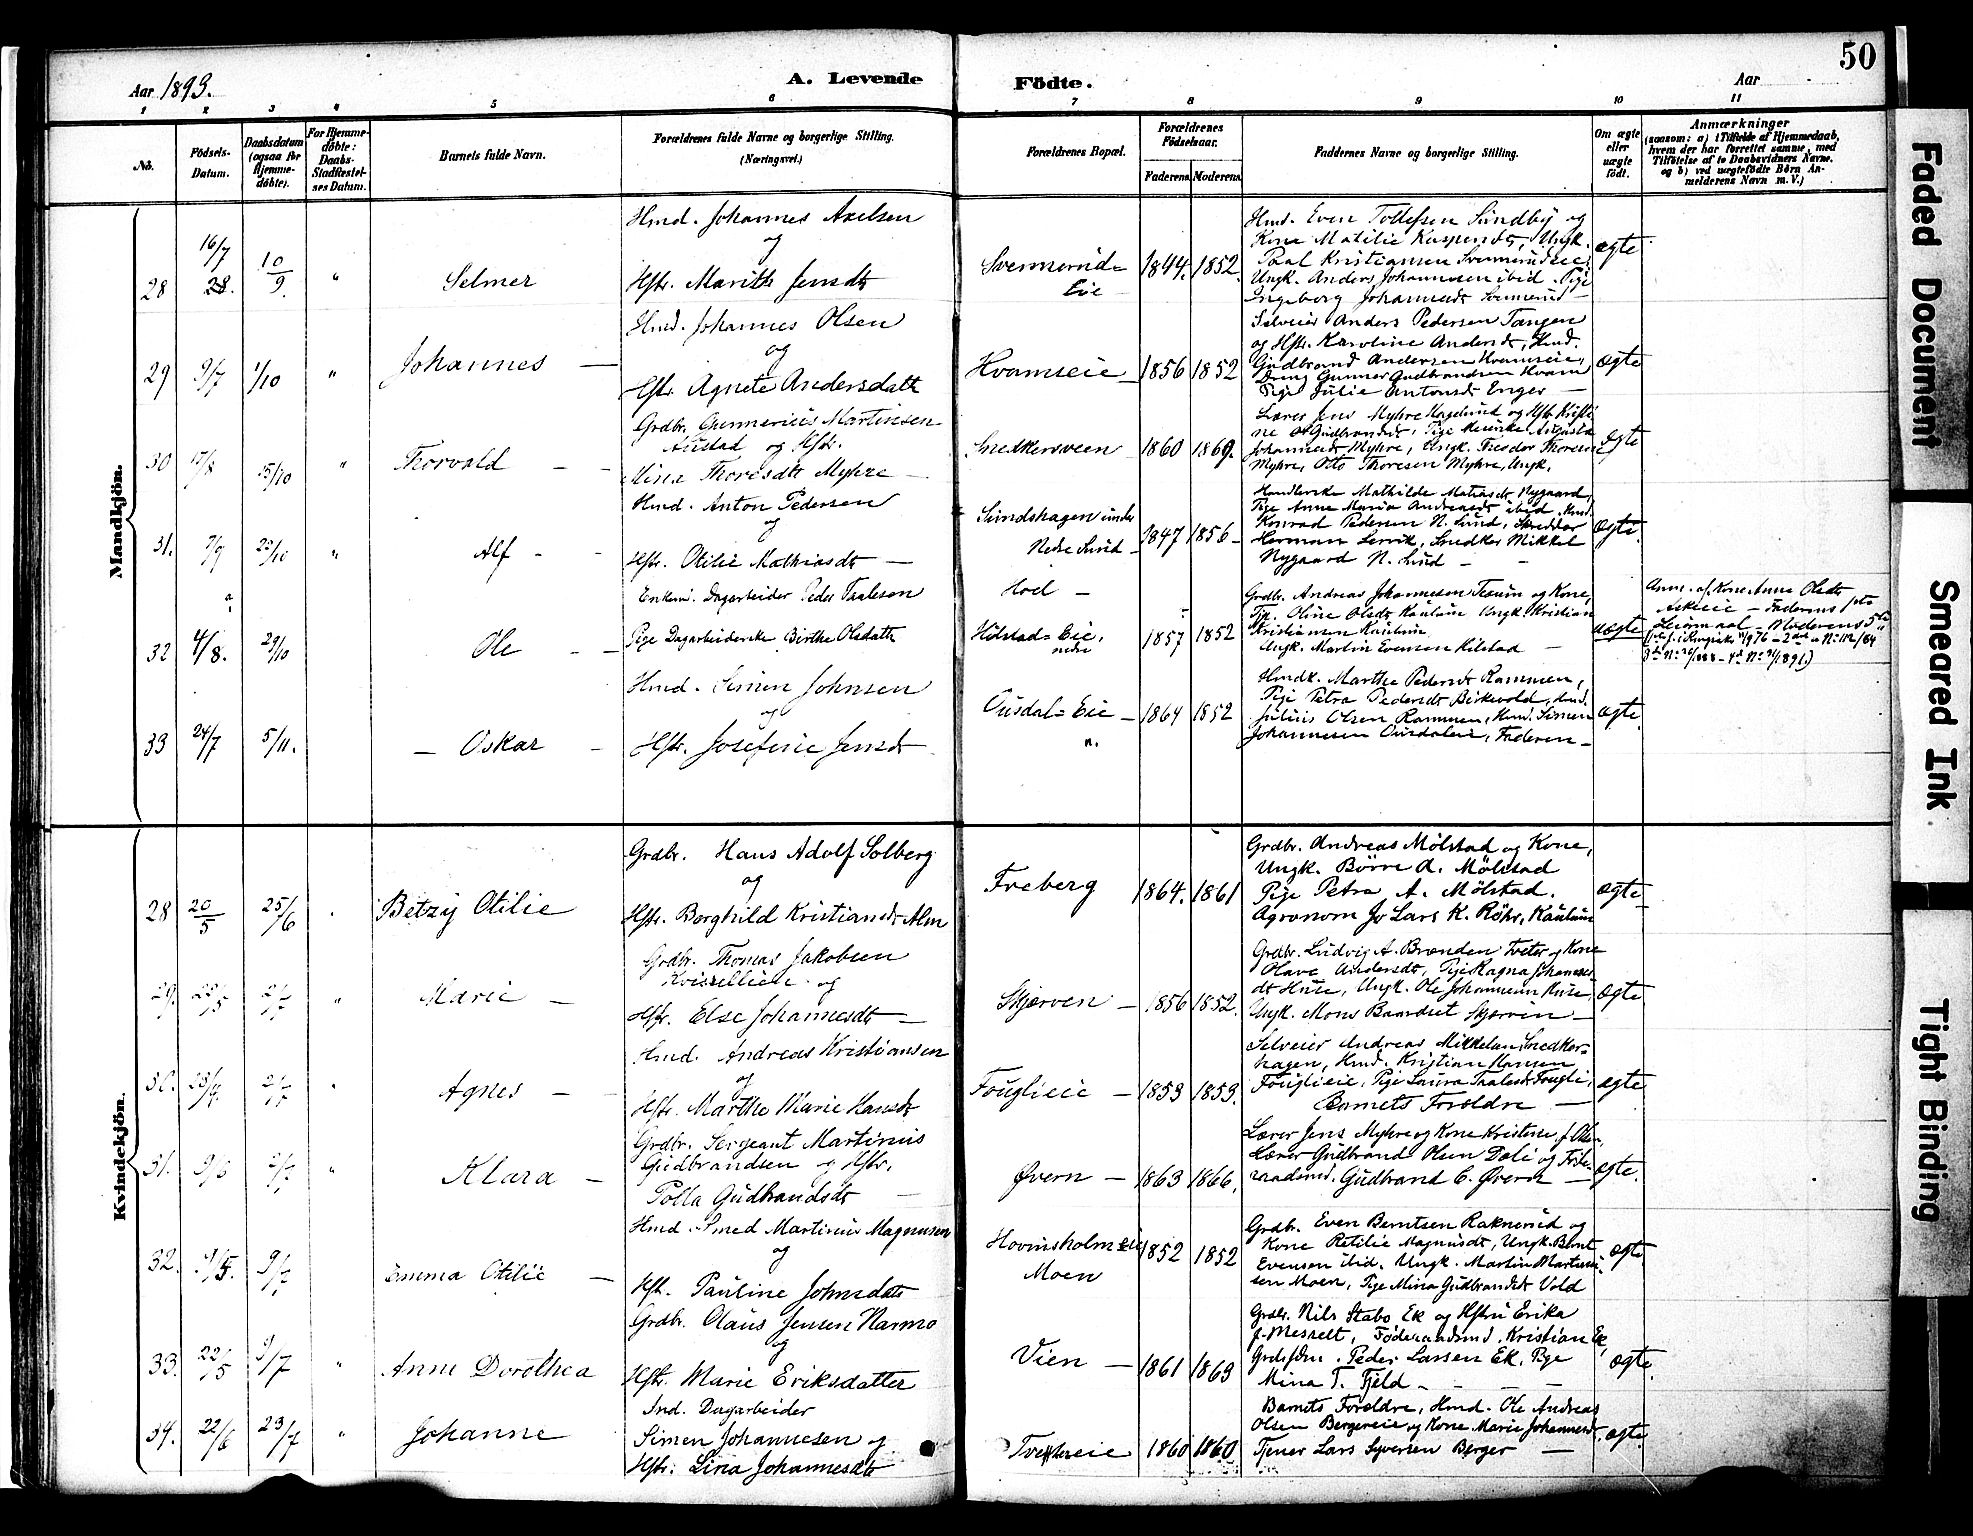 50
Aar 1893.
A. Levende Födte.
Aar
1 2 3 4 5 6 7 8 9 10 11
No.
Födsels-Datum.
Daabsdatum (ogsaa for Hjemme-döbte).
For Hjemme-döbte: Daabs-Stadfæstel-ses Datum.
Barnets fulde Navn.
Forældrenes fulde Navne og borgerlige Stilling.
(Næringsvei.)
Forældrenes Bopæl.
Forældrenes Födselsaar.
Faderens. Moderens.
Faddernes Navne og borgerlige Stilling.
Om ægte eller uægte födt.
Anmærkninger
(saasom: a) i Tilfælde af Hjemmedaab,
hvem der har forrettet samme, med
Tilföielse af to Daabsvidners Navne.
og b) ved uægtefödte Börn An-
melderens Navn m.V.)
Mandkjön.
28 16/7 10/9 " Selmer
Hmd. Johannes Axelsen
og
Hstr. Marith Jensdt
Svennerud-
Eie
1844. 1852.
Hmd. Even Tollefsen Sundby og
Kone Matilie Kaspersdt, Ungk.
Paal Kristiansen Svennerudeie,
Ungk. Anders Johannesen ibid. Pige
Ingeborg Johannesdt Svennerud —
ægte
29 9/7 1/10 " Johannes —
Hmd. Johannes Olsen
og
Hstr. Agnete Andersdatter
Hvamseie — 1856 1852
Selveier Anders Pedersen Tangen
og Hstr. Karoline Andersdt, Hmd.
Gudbrand Andersen Hvamseie,
Dreng Gunnar Gudbrandsen Hvam
Pige Julie Antonsdt Enger —
ægte
30 17/8 15/10 " Thorvald — —
Grdbr. Gunnerius Martinsen
Austad og Hstr.
Mina Thoresdt Myhre —
Snedkersveen 1860 1869.
Lærer Jens Myhre Hagelund og Hstr. Kristi-
ne Gudbrandsdt, Pige Augusta
Johannesdt Myhre, Ungk. Theodor Thoresen
Myhre, Otto Thoresen Myhre, Ungk.
ægte
31. 7/9 " Alf - -
Hmd. Anton Pedersen
og
Hstr. Otilie Mathiasdt —
Sundshagen under
Nedre Sund —
1847 1856 —
Handlerske Mathilde Matiasdt Nygaard,
Pige Anne Maria Andreasdt ibid. Hmd.
Konrad Pedersen N. Sund, Skrædder
Herman Lervik, Snedker Mikkel
Nygaard N. Sund — —
ægte.
32 4/8. 29/10 Ole — —
Enkem. Dagarbeider Peder Paalesen
Pige Dagarbeiderske Birthe Olsdatter
Hoel —
Hilstad-Eie,
nedre
1857 1852
Grdbr. Andreas Johannesen Teterum og Kone,
Pige Oline Olsdt Kaulum Ungk. Kristian
Kristiansen Kaulum
Ungk. Martin Evensen Hilstad —
uægte
Anm. af Kone Anne Olsdt
Askleie — Faderens 1ste
Leiermaal — Moderens 5te
33 24/7 5/11. — Oskar —
Hmd. Simen Johnsen
og
Hstr. Josefine Jensdt
Ousdal-Eie —
n.
1864 1852
Hmdk. Marthe Pedersdt Rammen,
Pige Petra Pedersdt Birkevold, Hmd.
Julius Olsen Rammen, Hmd. Simen
Johannesen Ousdaleie, Faderen —
ægte
Kvindekjön.
28 20/5 25/6 Betzy Otilie
Grdbr. Hans Adolf Solberg
og
Hstr. Borghild Kristiansdt Alm
Freberg 1864. 1861
Grdbr. Andreas Mølstad og Kone,
Ungk. Børre A. Mølstad
Pige Petra A. Mølstad.
Agronom Jo Lars K. Röhr, Kaulum
ægte
29. 2/7 " Marie —
Grdbr. Thomas Jakobsen
Kvisellien og
Hstr. Else Johannesdt —
Skjærven — 1856 1852.
Grdbr. Ludvig A. Brænden Tveter og Kone
Olave Andersdt, Pige Ragna Johannes-
dt Huse, Ungk. Ole Johannesen Huse,
Ungk. Mons Baardset Skjærven —
ægte
30. 2/7 Agnes —
Hmd. Andreas Kristiansen
og
Hstr. Marthe Marie Hansdt
Fouglieie — 1853 1853.
Selveier Andreas Mikkelsen Snedker-
hagen, Hmd. Kristian Hansen
Fouglieie, Pige Laura Paalesdt Fougli,
Barnets Forældre —
ægte
31. 9/6 2/7 " Klara —
Grdbr. Sergeant Martinus
Gudbrandsen og Hstr.
Polla Gudbrandsdt —
Øvern — 1863 1866.
Lærer Jens Myhre og Kone Kristine f. Olsen,
Lærer Gudbrand Olsen Dæli og Føde-
raadsmd. Gudbrand C. Øvern —
ægte.
32. 9/7 Emma Otilie —
Hmd. Smed Martinus Magnusen
og
Hstr. Pauline Johnsdatter
Hovinsholm Eie
Moen
1852 1852
Grdbr. Even Berntsen Raknerud og
Kone Retilie Magnusdt, Ungk. Bernt
Evensen ibid. Ungk. Martin Martinu-
sen Moen, Pige Mina Gudbrandsdt Vold
ægte.
33. 22/5 9/7 " Anne Dorothea
Grdbr. Olaus Jensen Narmo
og
Hstr. Marie Eriksdatter
Vien — 1861 1863
Grdbr. Nils Stabo Ek og Hstru Erika
f. Messelt, Føderaadsmd. Kristian Ek,
Peder Larsen Ek. Pige
Mina T. Fjeld — — — —
ægte.
34. 22/6 23/7 " Johanne
Ind. Dagarbeider
Simen Johannesen og
Hstr. Lina Johannesdt
Tvetereie 1860 1860
Barnets Forældre, Hmd. Ole Andreas
Olsen Bergereie og Kone Marie Johannesdt,
Tjener Lars Syversen Berger —
ægte.
Faded Document
Smeared Ink
Tight Binding